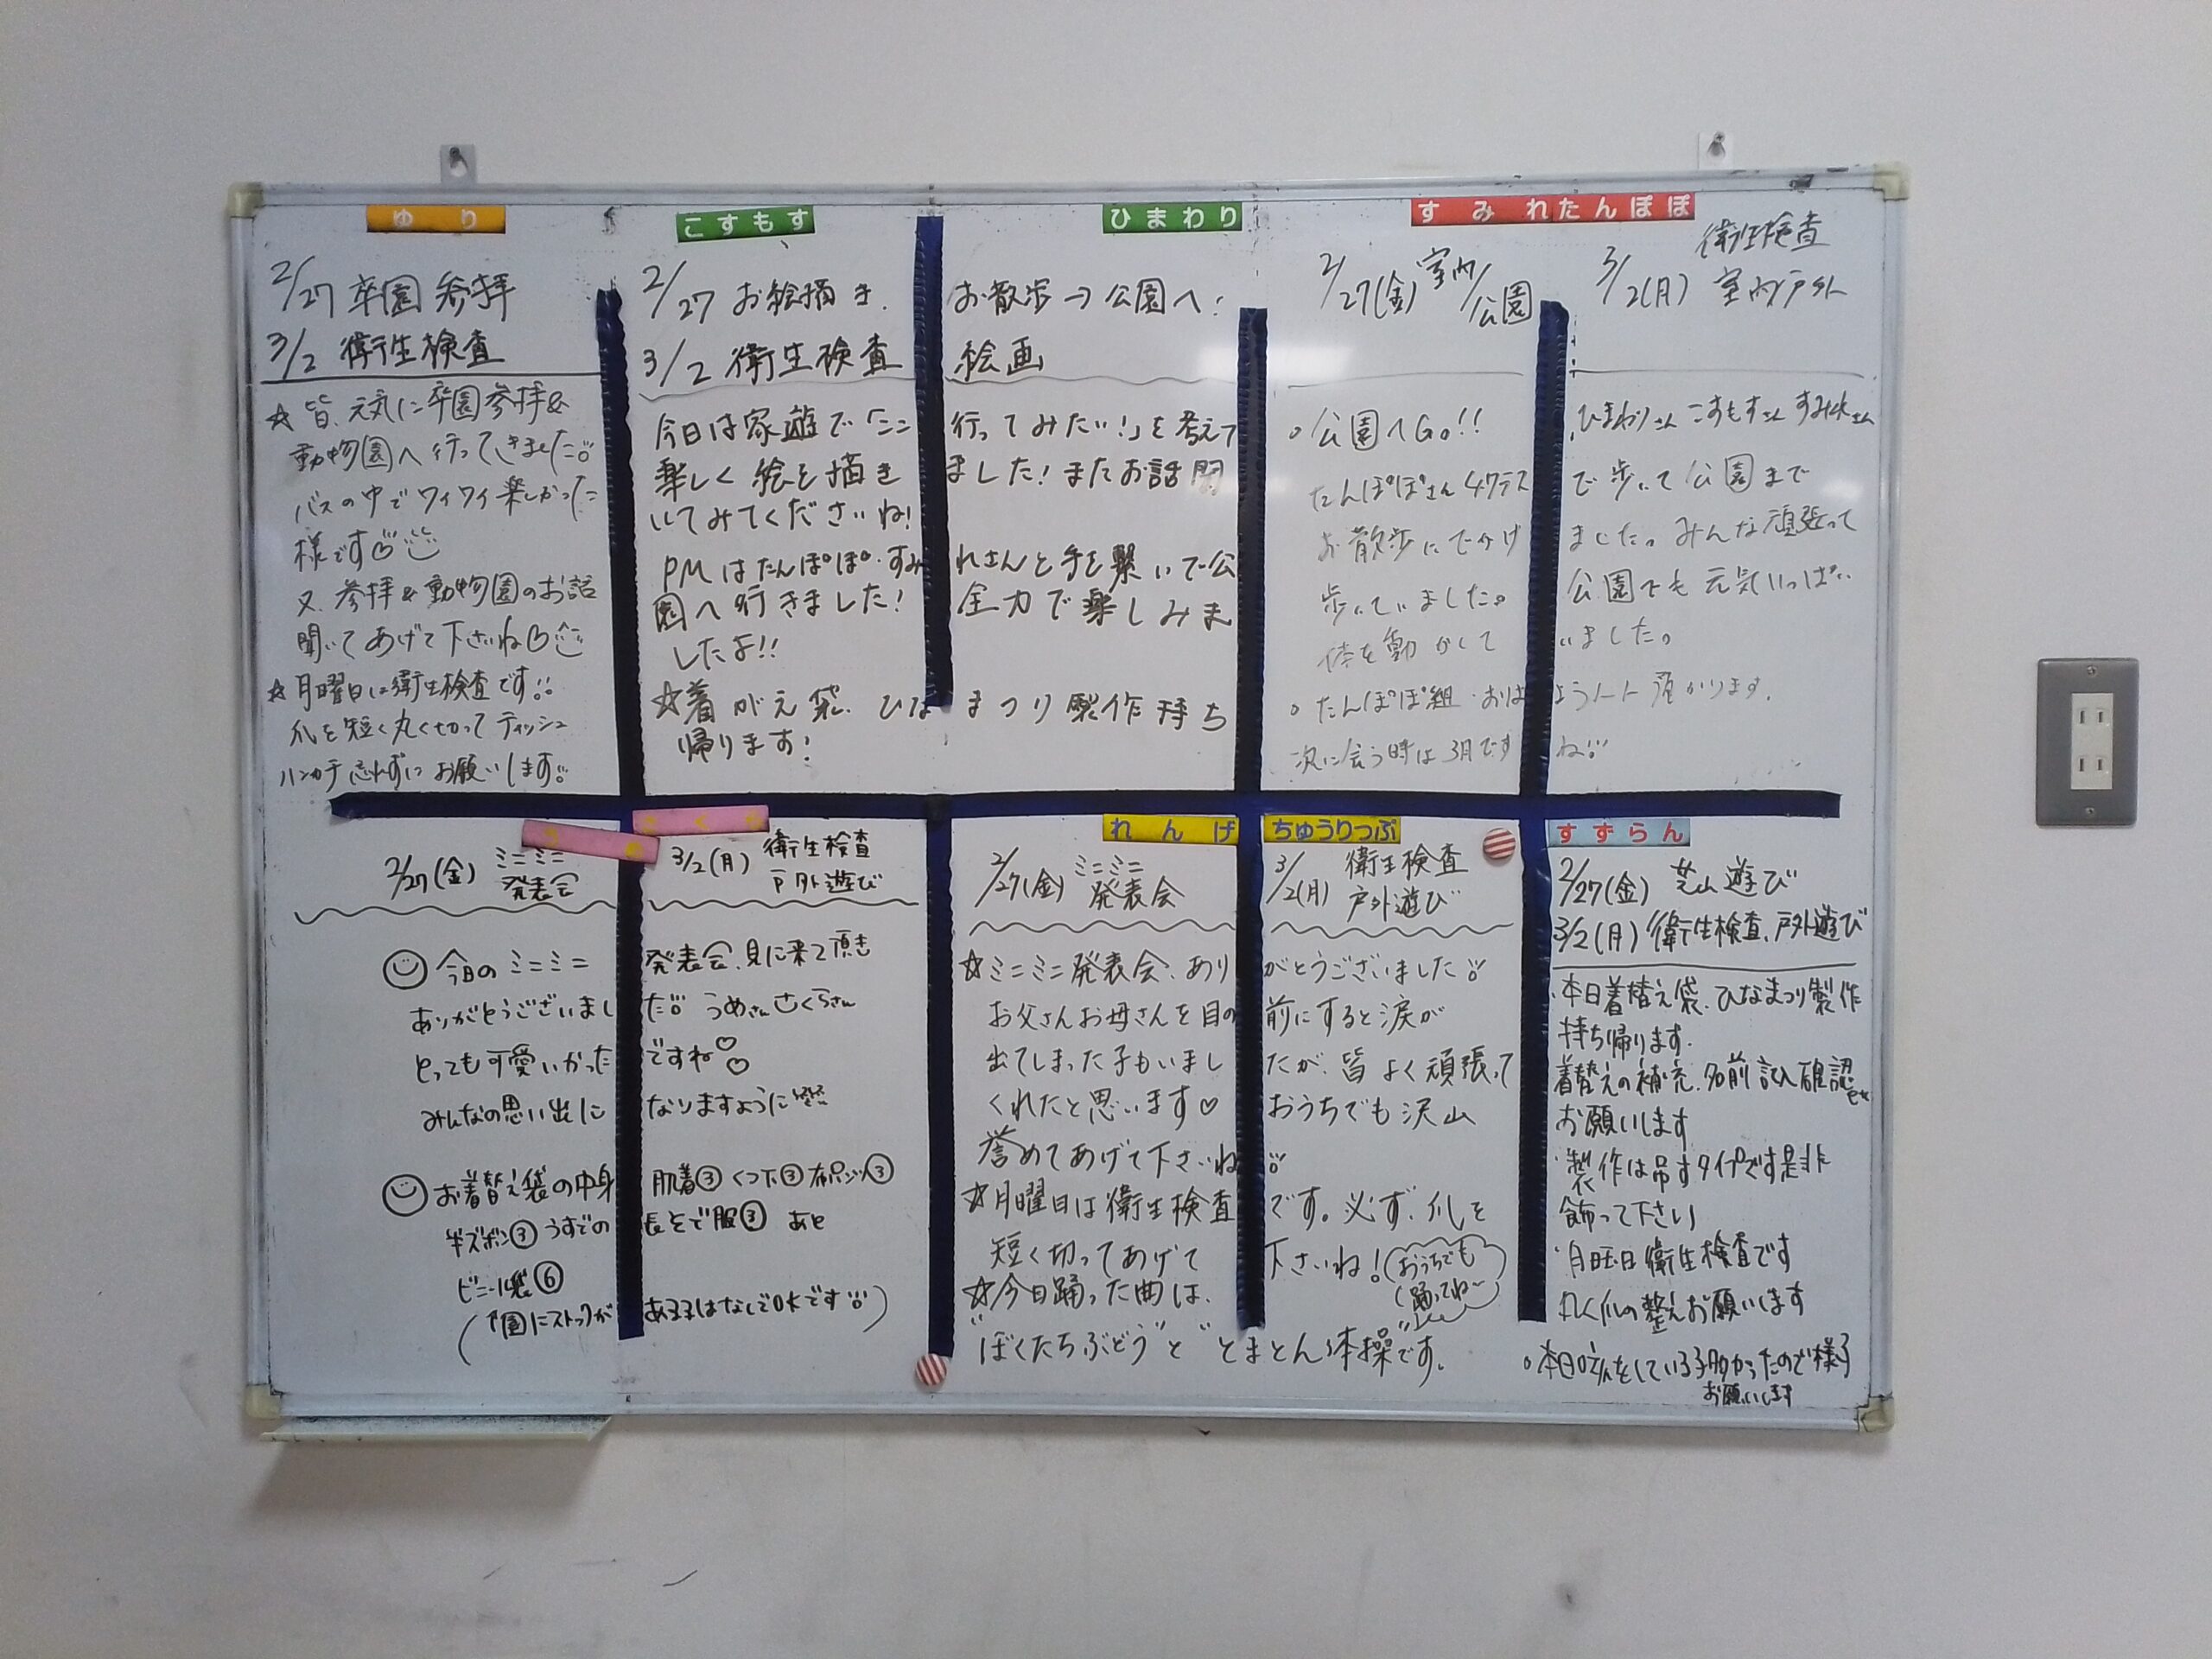 ゆり
2/27 卒園参拝
3/2 衛生検査
☆皆、元気に卒園参拝&
動物園へ行ってきました
バスの中でワイワイ楽しかった
様です♡
又、参拝&動物園のお話
聞いてあげて下さいね♡
☆月曜日は衛生検査です
爪を短く丸く切ってティッシュ
ハンカチ忘れずにお願いします
こすもす ひまわり
2/27 お絵描き. お散歩→公園へ!
3/2 衛生検査 絵画
今日は家遊で「ここ行ってみたい!」を考えて
楽しく絵を描きました!またお話聞
いてみてくださいね!
PMはたんぽぽ・すみれさんと手を繋いで公
園へ行きました!全力で楽しみま
したよ!!
☆着がえ袋、ひなまつり製作持ち
帰ります!
すみれ たんぽぽ
2/27(金) 室内/公園
3/2(月) 衛生検査 室内/戸外
○公園へGo!! ひまわりさん こすもすさん すみれさん
たんぽぽさん 4クラスで歩いて公園まで
お散歩にでかけました。みんな頑張って
歩いていました。公園でも元気いっぱい
体を動かして いました。
○たんぽぽ組・おはようノート預かります。
次に会う時は3月ですね
さくら
2/27(金) ミニミニ発表会
3/2(月) 衛生検査 戸外遊び
今日のミニミニ発表会、見に来て頂き
ありがとうございました うめさん さくらさん
とっても可愛いかったですね♡♡
みんなの思い出になりますように
お着替え袋の中身 肌着③ くつ下③ 布パンツ③
半ズボン③ うすでの長そで服③ あと
ビニール袋⑥
(↑園にストックがある子はなしでOKです)
れんげ ちゅうりっぷ
2/27(金) ミニミニ発表会
3/2(月) 衛生検査 戸外遊び
☆ミニミニ発表会、ありがとうございました
お父さんお母さんを目の前にすると涙が
出てしまった子もいましたが、皆よく頑張って
くれたと思います♡おうちでも沢山
誉めてあげて下さいね
☆月曜日は衛生検査です。必ず、爪を
短く切ってあげて下さいね!
☆今日踊った曲は、
"ぼくたちぶどう"と"とまとん体操"です。
(おうちでも踊ってね〜)
すずらん
2/27(金) 芝山遊び
3/2(月) 衛生検査、戸外遊び
・本日着替え袋、ひなまつり製作
持ち帰ります.
着替えの補充、名前記入確認
お願いします
・製作は吊すタイプです是非
飾って下さい
・月曜日衛生検査です
爪の整えお願いします
○本日咳をしている子多かったので様子
お願いします